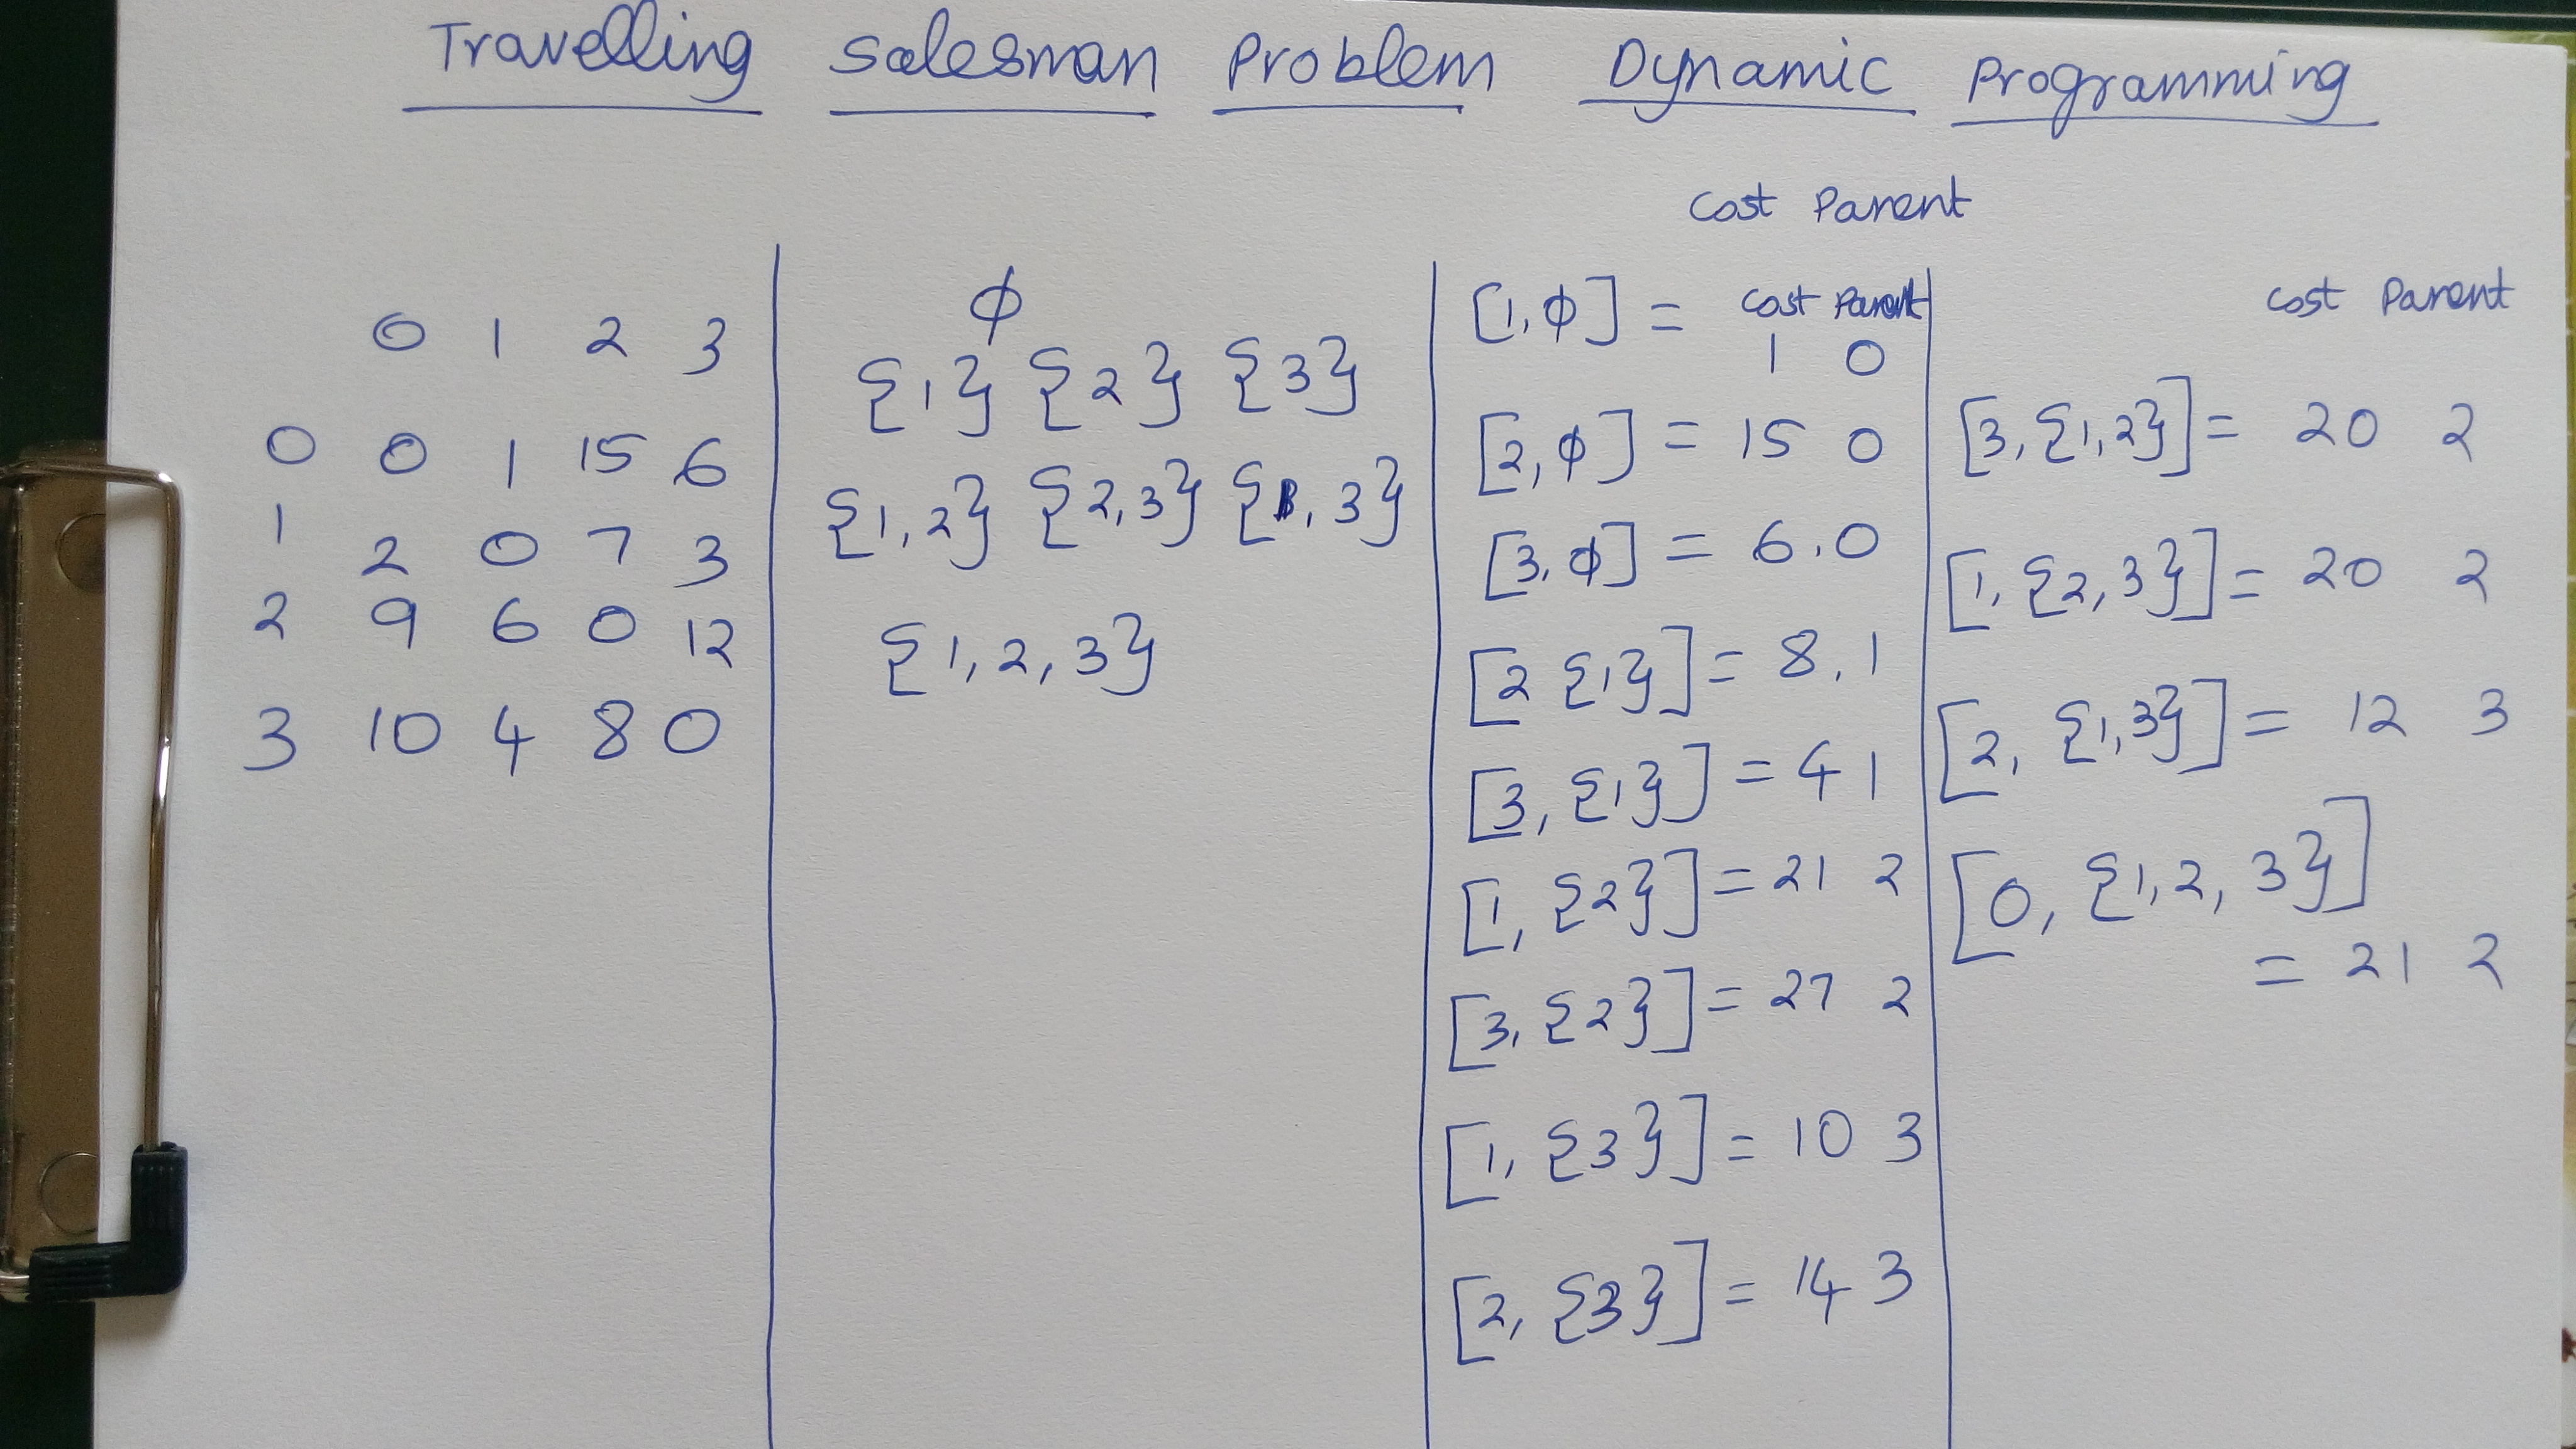 Travelling Salesman Problem Dynamic Programming
Cost Parent
0 1 2 3
0 0 1 15 6
1 2 0 7 3
2 9 6 0 12
3 10 4 8 0
ϕ
{1} {2} {3}
{1,2} {2,3} {1,3}
{1,2,3}
[1,ϕ] = Cost Parent
1 0
[2,ϕ] = 15 0
[3,ϕ] = 6.0
[2 {1}] = 8,1
[3,{1}] = 4 1
[1,{2}] = 21 2
[3,{2}] = 27 2
[1,{3}] = 10 3
[2,{3}] = 14 3
Cost Parent
[3,{1,2}] = 20 2
[1,{2,3}] = 20 2
[2,{1,3}] = 12 3
[0,{1,2,3}]
= 21 2